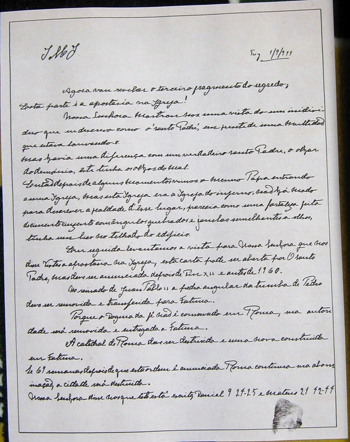 J M J
Tuy 1/9/944
Agora vou revelar o terceiro fragmento do segredo;
Esta parte é a apostasia na Igreja!
Nossa Senhora mostrou-nos uma vista do um indivi
duo que eu descrevo como o santo Padre, em frente de uma multidão
que estava louvando-o.
Mas havia uma diferença com um verdadeiro santo Padre, o olhar
do demonio, este tinha os olhos do mal.
depois de alguns momentos vimos o mesmo Papa entrando
a uma Igreja, mas esta Igreja era a Igreja do inferno, não há modo
para descrever a fealdade desse lugar, parecia como uma fortaleza feita
de cimento cinzento com ângulos quebrados e janelas semelhantes a olhos,
tinha um bico no telhado do edificio.
Em seguida levantamos a vista para Nossa Senhora que nos
disse Vistes a apostasia na Igreja, esta carta pode ser aberta por O santo
Padre, mas deve ser anunciada depois de Pio XII e antes de 1960.
No reinado de Juan Pablo II a pedra angular da tumba de Pedro
deve ser removida e transferida para Fatima.
Porque o dogma da fé não é conservado em Roma, sua autori
dade será removida e entregada a Fatima.
A catedral de Roma deve ser destruida e uma nova construida
em Fatima.
Se 69 semanas depois de que esta ordem é anunciada Roma continua sua abomi
nação, a cidade será destruida.
Nossa Senhora disse-nos que esto está escrito, Daniel 9 24-25 e Mateus 21 42-44